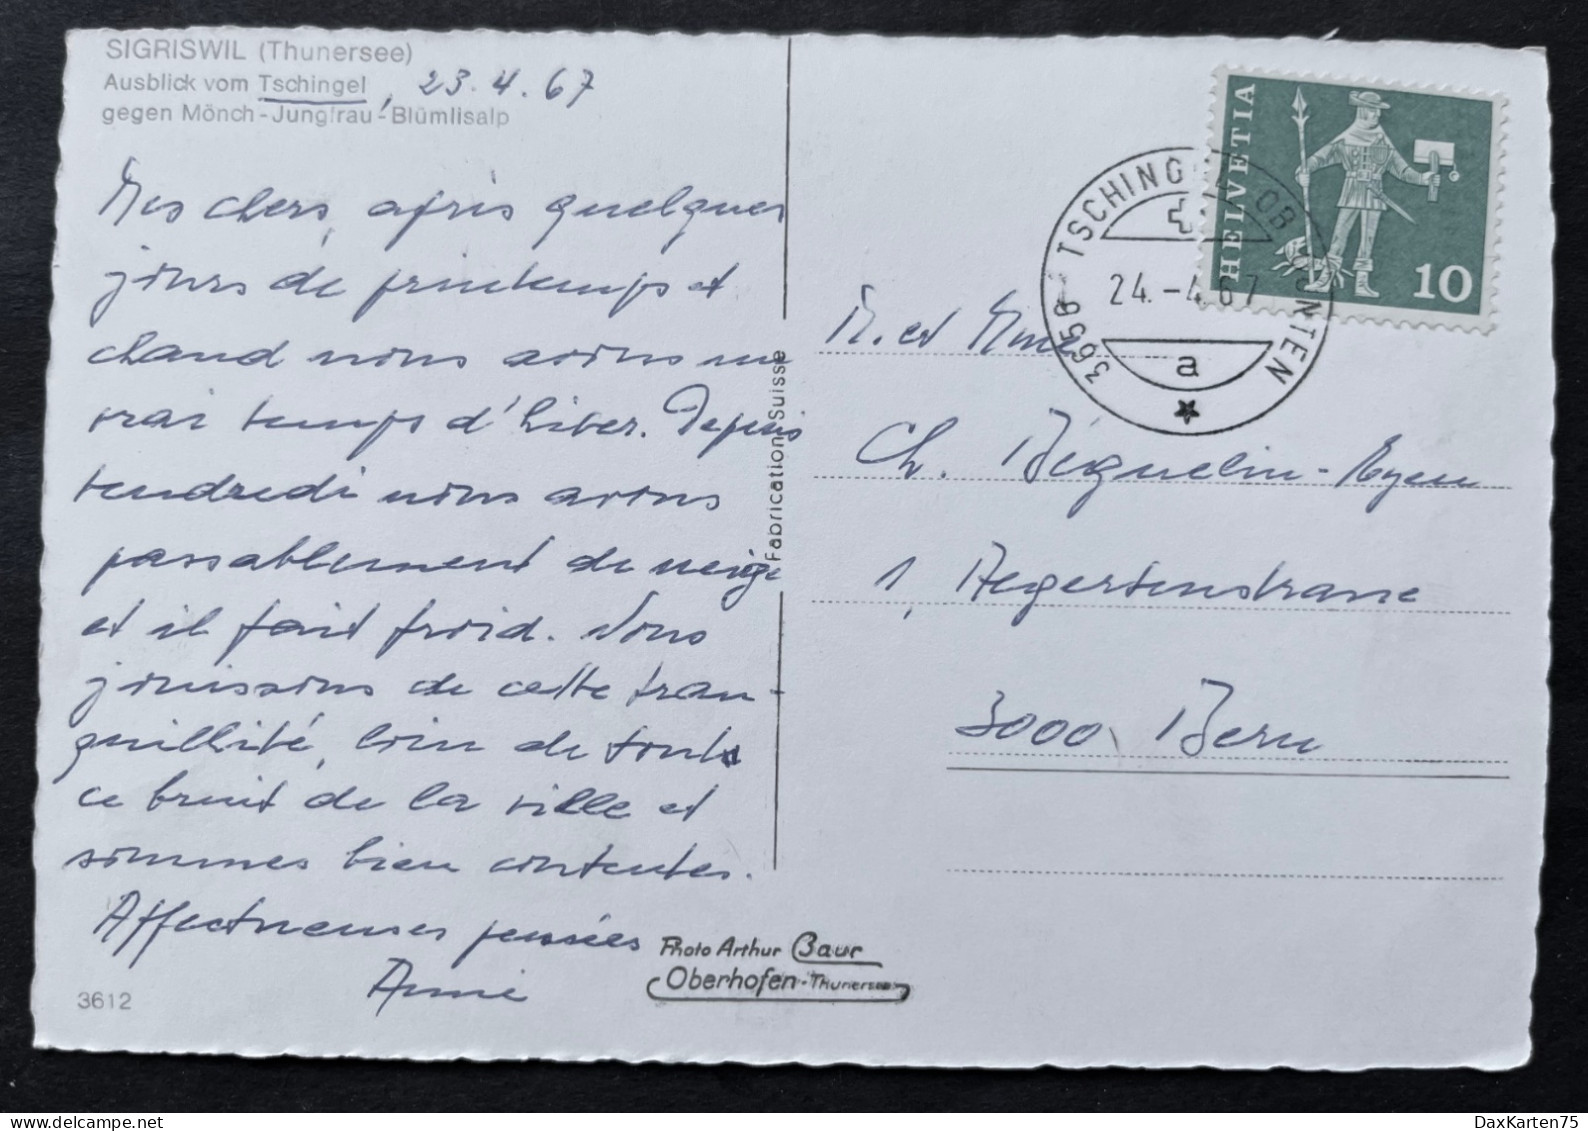 SIGRISWIL (Thunersee)
Ausblick vom Tschingel, 23.4.67
gegen Mönch-Jungfrau-Blümlisalp
Mes chers, après quelques
jours de printemps et
chaud nous avons un
vrai temps d'hiver. Depuis
vendredi nous avons
passablement de neige
et il fait froid. Nous
jouissons de cette tran-
quillité, loin de tout
ce bruit de la ville et
sommes bien contentes.
Affectueuses pensées
Annie
3612
Photo Arthur Baur
Oberhofen-Thunersee
Fabrication Suisse
HELVETIA
10
3656 TSCHINGEL OB GUNTEN
24.-4.67
a
M. et Mme
Ch. Béguelin-Ryser
1, Aegertenstrasse
3000 Bern
DaxKarten75